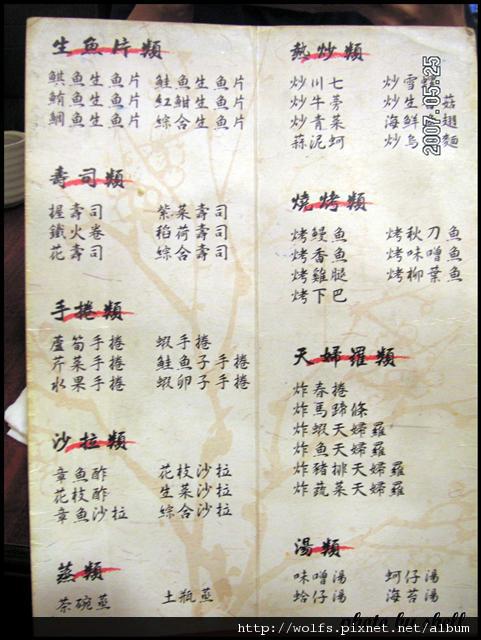 生魚片類
鯕魚生魚片 鮭魚生魚片
鮪魚生魚片 紅魽生魚片
鯛魚生魚片 綜合生魚片
壽司類
握壽司 紫菜壽司
鐵火卷 稻荷壽司
花壽司 綜合壽司
手捲類
蘆筍手捲 蝦手捲
芹菜手捲 鮭魚子手捲
水果手捲 蝦卵子手捲
沙拉類
章魚酢 花枝沙拉
花枝酢 生菜沙拉
章魚沙拉 綜合沙拉
蒸類
茶碗蒸 土瓶蒸
熱炒類
炒川七 炒雪
炒牛蒡 炒生 菇
炒青菜 海鮮
蒜泥蚵 炒烏 麵
燒烤類
烤鰻魚 烤秋刀魚
烤香魚 烤味噌魚
烤雞腿 烤柳葉魚
烤下巴
天婦羅類
炸春捲
炸馬蹄條
炸蝦天婦羅
炸魚天婦羅
炸豬排天婦羅
炸蔬菜天婦羅
湯類
味噌湯 蚵仔湯
蛤仔湯 海苔湯
2007.05.25
photo by shell
http://wolfs.pixnet.net/album